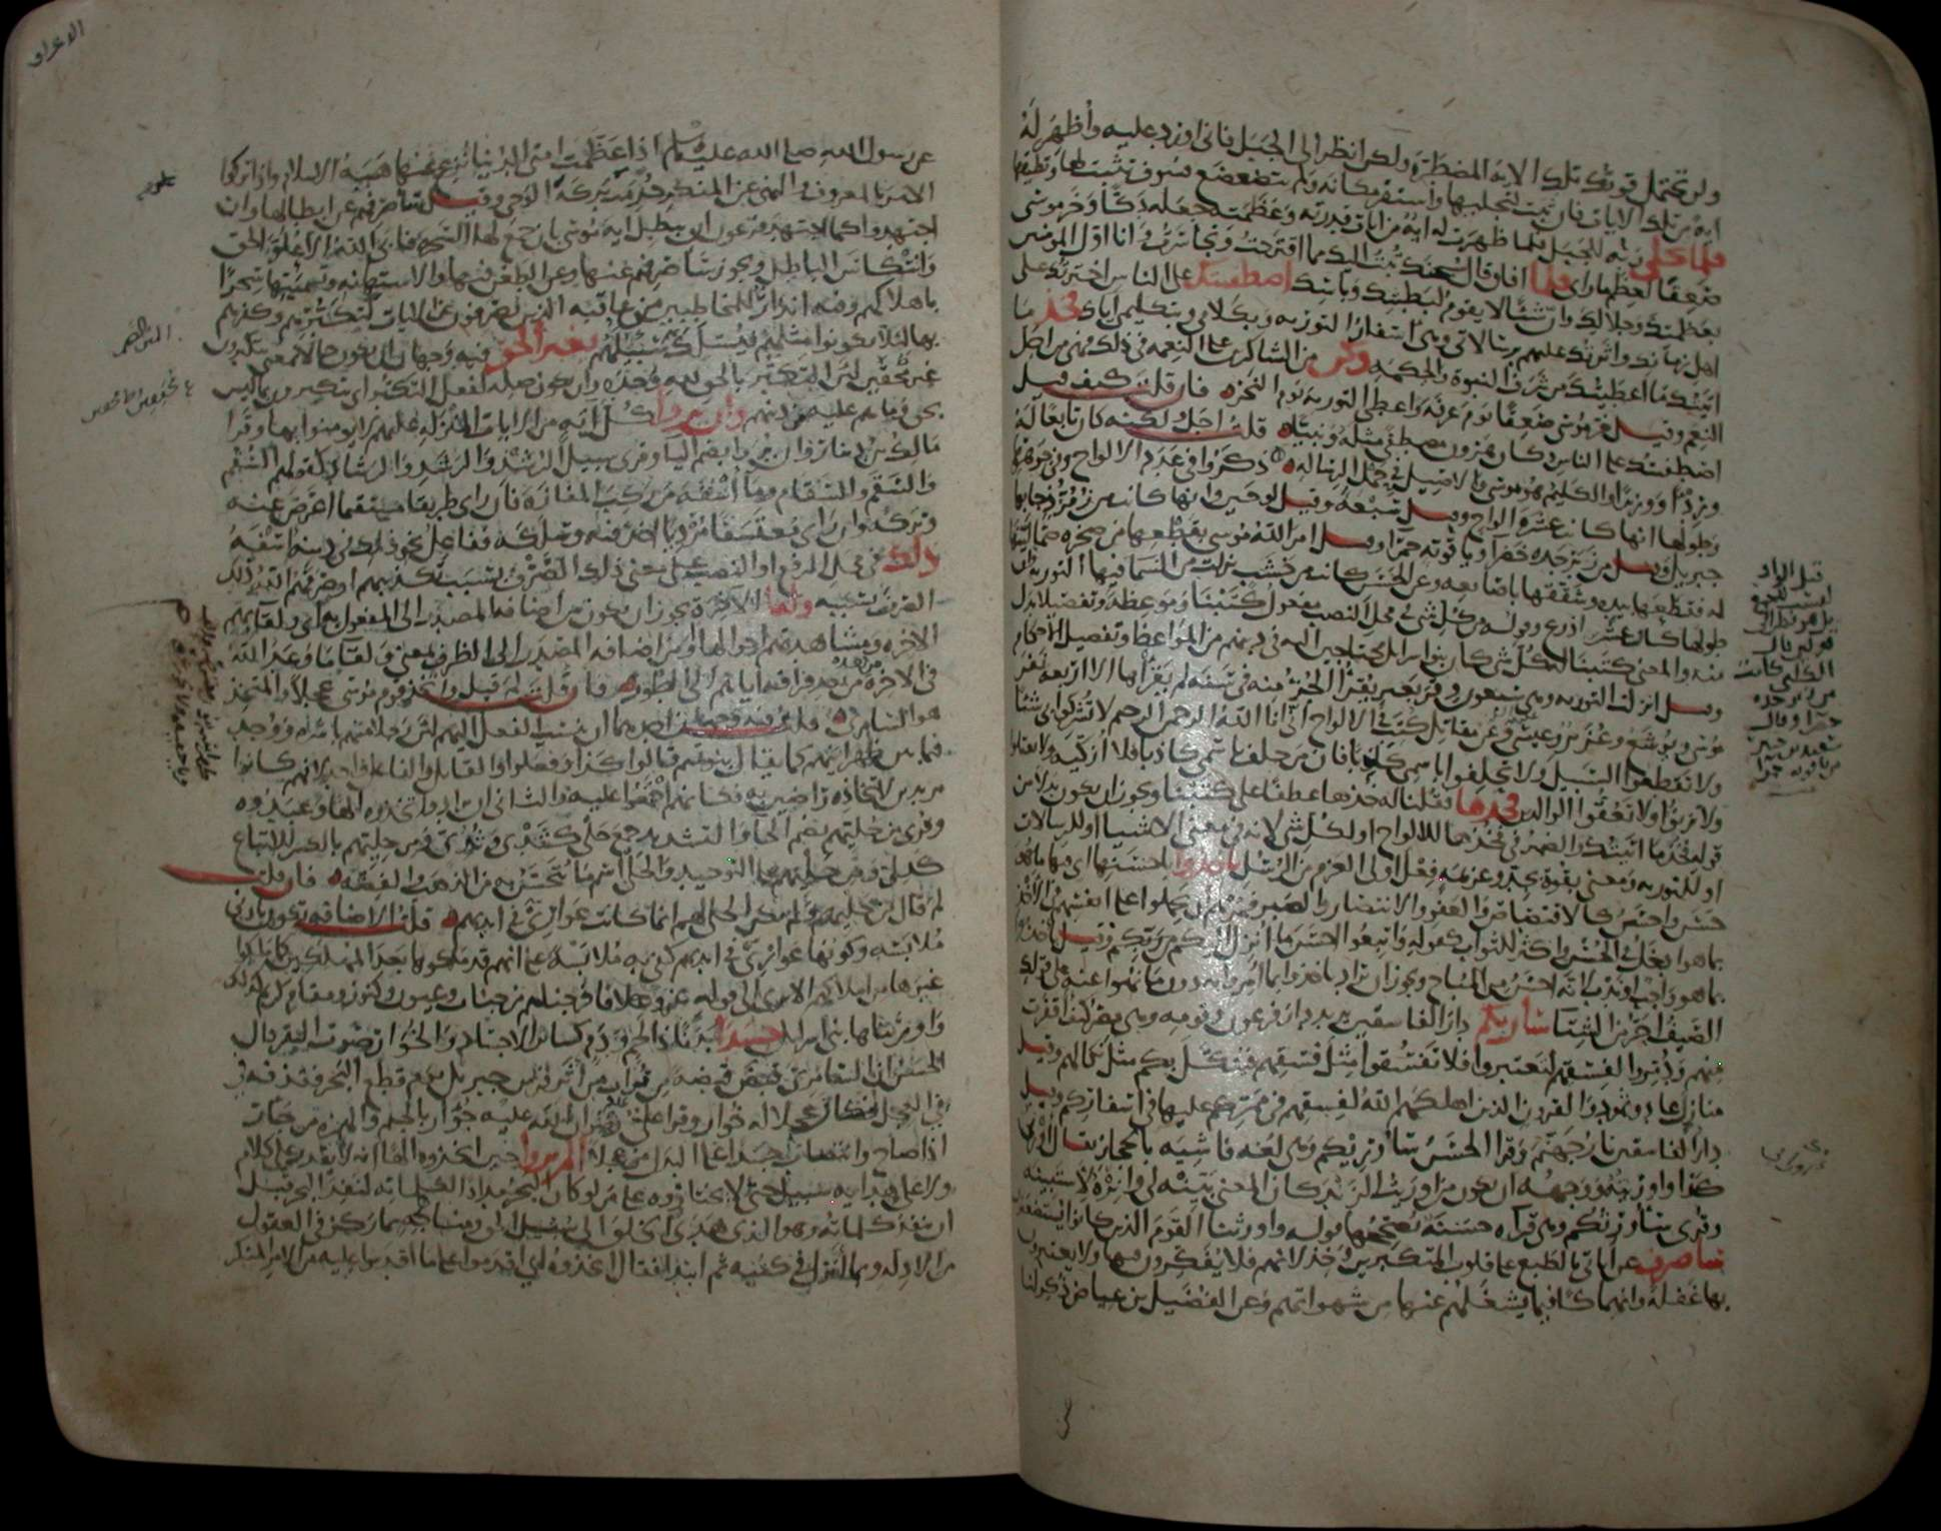 ولن تحتمل قوتك تلك الاية المضطرة ولكن انظر الى الجبل فانى اورد عليه واظهر له
اية من تلك الايات فان ثبت لتجليها واستقر مكانه ولم يتضعضع فسوف تثبت لها وتطيقها
فلما تجلى ربه للجبل فلما ظهرت له اية من ايات قدرته وعظمته جعله دكا وخر موسى
صعقا لعظم ما راى فلما افاق قال سبحنك تبت اليك مما اقترحت وتجاسرت وانا اول المومنين
بعظمتك وجلالك وان شيئا لا يقوم لبطشك وباسك اصطفيتك على الناس اخترتك على
اهل زمانك واثرتك عليهم برسالاتى وهى اسفار التوريه وبكلامى وبتكليمى اياك فخذ ما
اتيتك ما اعطيتك من شرف النبوة والحكمه وكن من الشاكرين على النعمه فى ذلك فهى من اجل
النعم وقيل خر موسى صعقا يوم عرفه واعطى التوريه يوم النحر فان قلت كيف قيل
اصطفيتك على الناس وكان هرون مصطفى مثله ونبيا قلت اجل ولكنه كان تابعا له
وردءا ووزيرا والكليم هو موسى والاصيل فى حمل الرساله ذكروا فى عدد الالواح وفى جوهرها
وطولها انها كانت عشرة الواح وقيل سبعه وقيل لوحين وانها كانت من زمرد جا بها
جبريل وقيل من زبرجده خضرا وياقوته حمرا وقيل امر الله موسى بقطعها من صخره صما لينها
له فقطعها بيده وشققها باصابعه وعن الحسن كانت من خشب نزلت من السما فيها التوريه وان
طولها كان عشر اذرع وقوله من كل شى فى محل النصب مفعول كتبنا وموعظه وتفصيلا بدل
منه والمعنى كتبنا له كل شى كان بنو اسرايل محتاجين اليه فى دينهم من المواعظ وتفصيل الاحكام
وقيل انزلت التوريه وهى سبعون وقر بعير يقرأ الجزء منه فى سنه لم يقرأها الا اربعه نفر
موسى ويوشع وعزير وعيسى وعن مقاتل كتب فى الالواح انى انا الله الرحمن الرحيم لا تشركوا بى شيئا
ولا تقطعوا السبيل ولا تحلفوا باسمى كاذبا فان من حلف باسمى كاذبا فلا ازكيه ولا تقتلوا
ولا تزنوا ولا تعقوا الوالدين فخذها فقلنا له خذها عطفا على كتبنا ويجوز ان يكون بدلا من
قوله فخذ ما اتيتك والضمير فى فخذها للالواح او لكل شى لانه فى معنى الاشيا او للرسالات
او للتوريه ومعنى بقوة بجد وعزيمه فعل اولى العزم من الرسل ياخذوا باحسنها اى فيها ما هو
حسن واحسن كالاقتصاص والعفو والانتصار والصبر فمرهم ان يحملوا على انفسهم الاخذ
بما هو ادخل فى الحسن واكثر للثواب كقوله واتبعوا احسن ما انزل اليكم من ربكم وقيل ياخذوا
بما هو واجب او ندب لانه احسن من المباح ويجوز ان يراد ياخذوا بما امروا به دون ما نهوا عنه على قولك
الصيف احر من الشتا ساريكم دار الفاسقين يريد دار فرعون وقومه وهى مصر كيف اقفرت
منهم ودمروا لفسقهم لتعتبروا فلا تفسقوا مثل فسقهم فينكل بكم مثل نكالهم وقيل
منازل عاد وثمود والقرون الذين اهلكهم الله لفسقهم فى ممركم عليها فى اسفاركم وقيل
دار الفاسقين نار جهنم وقرا الحسن ساوريكم وهى لغه فاشيه بالحجاز يقال اورنى
كذا واوريته ووجهه ان يكون من اوريت الزند كان المعنى بينه لى وانره لاستبينه
وقرى ساورثكم وهى قرآه حسنه يصححها قوله واورثنا القوم الذين كانوا يستضعفون
ساصرف عن اياتى بالطبع على قلوب المتكبرين وخذلانهم فلا يفكرون فيها ولا يعتبرون
بها غفله وانهماكا فيما يشغلهم عنها من شهواتهم وعن الفضيل بن عياض ذكر لنا
قيل اراد
الكلبى كانت
من زبرجده
خضرا وقال
سعيد بن جبير
من ياقوته حمرا
الاعراف
عن رسول الله صلى الله عليه وسلم اذا عظمت امتى الدنيا نزع عنها هيبة الاسلام واذا تركوا
الامر بالمعروف والنهى عن المنكر حرمت بركة الوحى وقيل ساصرفهم عن ابطالها وان
اجتهدوا كما اجتهد فرعون ان يبطل اية موسى بان جمع لها السحرة فابى الله الا علو الحق
وانتكاس الباطل ويجوز ساصرفهم عنها وعن الطعن فيها والاستهانه وتسميتها سحرا
باهلاكهم وفيه انذار للمخاطبين من عاقبة الذين يصرفون عن الايات لتكبرهم وكفرهم
بها لئلا يكونوا مثلهم فيسلك بهم سبيلهم بغير الحق فيه وجهان ان يكون حالا بمعنى يتكبرون
غير محقين لان التكبر بالحق لله وحده وان يكون صله لفعل التكبر اى يتكبرون بما ليس
بحق وما هم عليه من دينهم وان يروا كل آية من الايات المنزله عليهم لا يومنوا بها وقرا
مالك بن دينار وان يروا بضم اليا وقرى سبيل الرشد والرشد والرشاد كقولهم السقم
والسقم والسقام وما اسفه من ركب المفازة فان راى طريقا مستقيما اعرض عنه
وتركه وان راى معتسفا مرديا اخذ فيه وسلكه ففاعل نحو ذلك فى دينه اسفه
ذلك فى محل الرفع او النصب على معنى ذلك الصرف بسبب تكذيبهم او صرفهم الله ذلك
الصرف بسببه ولقا الاخرة يجوز ان يكون من اضافه المصدر الى المفعول به اى ولقآيهم
الاخره ومشاهدتهم احوالها ومن اضافه المصدر الى الظرف بمعنى ولقا ما وعد الله
فى الاخره من بعده من بعد فراقه اياهم الى الطور فان قلت لم قيل واتخذ قوم موسى عجلا والمتخذ
هو السامرى قلت فيه وجهان احدهما ان ينسب الفعل اليهم لان رجلا منهم باشره ووجد
فيما بين ظهرانيهم كما يقال بنو تميم قالوا كذا وفعلوا والقايل والفاعل واحد ولانهم كانوا
مريدين لاتخاذه راضين به فكانهم اجمعوا عليه والثانى ان يراد واتخذوه الها وعبدوه
وقرى من حليهم بضم الحا والتشديد جمع حلى كثدى وثدى ومن حليهم بالكسر للاتباع
كدلى ومن حليهم على التوحيد والحلى اسم ما يتحسن به من الذهب والفضه فان قلت
لم قال من حليهم ولم يكن الحلى لهم انما كانت عوارى فى ايديهم قلت الاضافه تكون بادنى
ملابسه وكونها عوارى فى ايديهم كفى به ملابسة على انهم قد ملكوها بعد المهلكين كما ملكوا
غيرها من املاكهم الا ترى الى قوله عز وعلا فاخرجناهم من جنات وعيون وكنوز ومقام كريم كذلك
واورثناها بنى اسرايل جسدا بدنا ذا لحم ودم كسائر الاجساد والخوار صوت البقر قال
الحسن ان السامرى قبض قبضه من تراب من اثر فرس جبريل يوم قطع البحر فقذفه
فى فى العجل فكان عجلا له خوار وقرا على رضوان الله عليه جؤار بالجيم والهمزة من جأر
اذا صاح وانتصاب جسدا على البدل من عجلا الم يروا حين اتخذوه الها انه لا يقدر على كلام
ولا على هدايه سبيل حتى لا يختاروه على من لو كان البحر مدادا لكلماته لنفد البحر قبل
ان تنفد كلماته وهو الذى هدى الخلق الى سبيل الحق ومناهجه بما ركز فى العقول
من الادله وبما انزل فى كتبه ثم ابتدا فقال اتخذوه اى اقدموا على ما اقدموا عليه من الامر المنكر